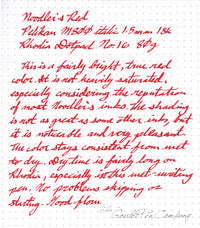 Noodler's Red
Pelikan M800 italic 1.5mm 18k
Rhodia Dotpad No. 16 80g
This is a fairly bright, true red
color. It is not heavily saturated,
especially considering the reputation
of most Noodler's inks. The shading
is not as great as some other inks, but
it is noticeable and very pleasant.
The color stays consistent from wet
to dry. Dry time is fairly long on
Rhodia, especially in the wet-writing
pen. No problems skipping or
starting. Good flow.
The Goulet Pen Company